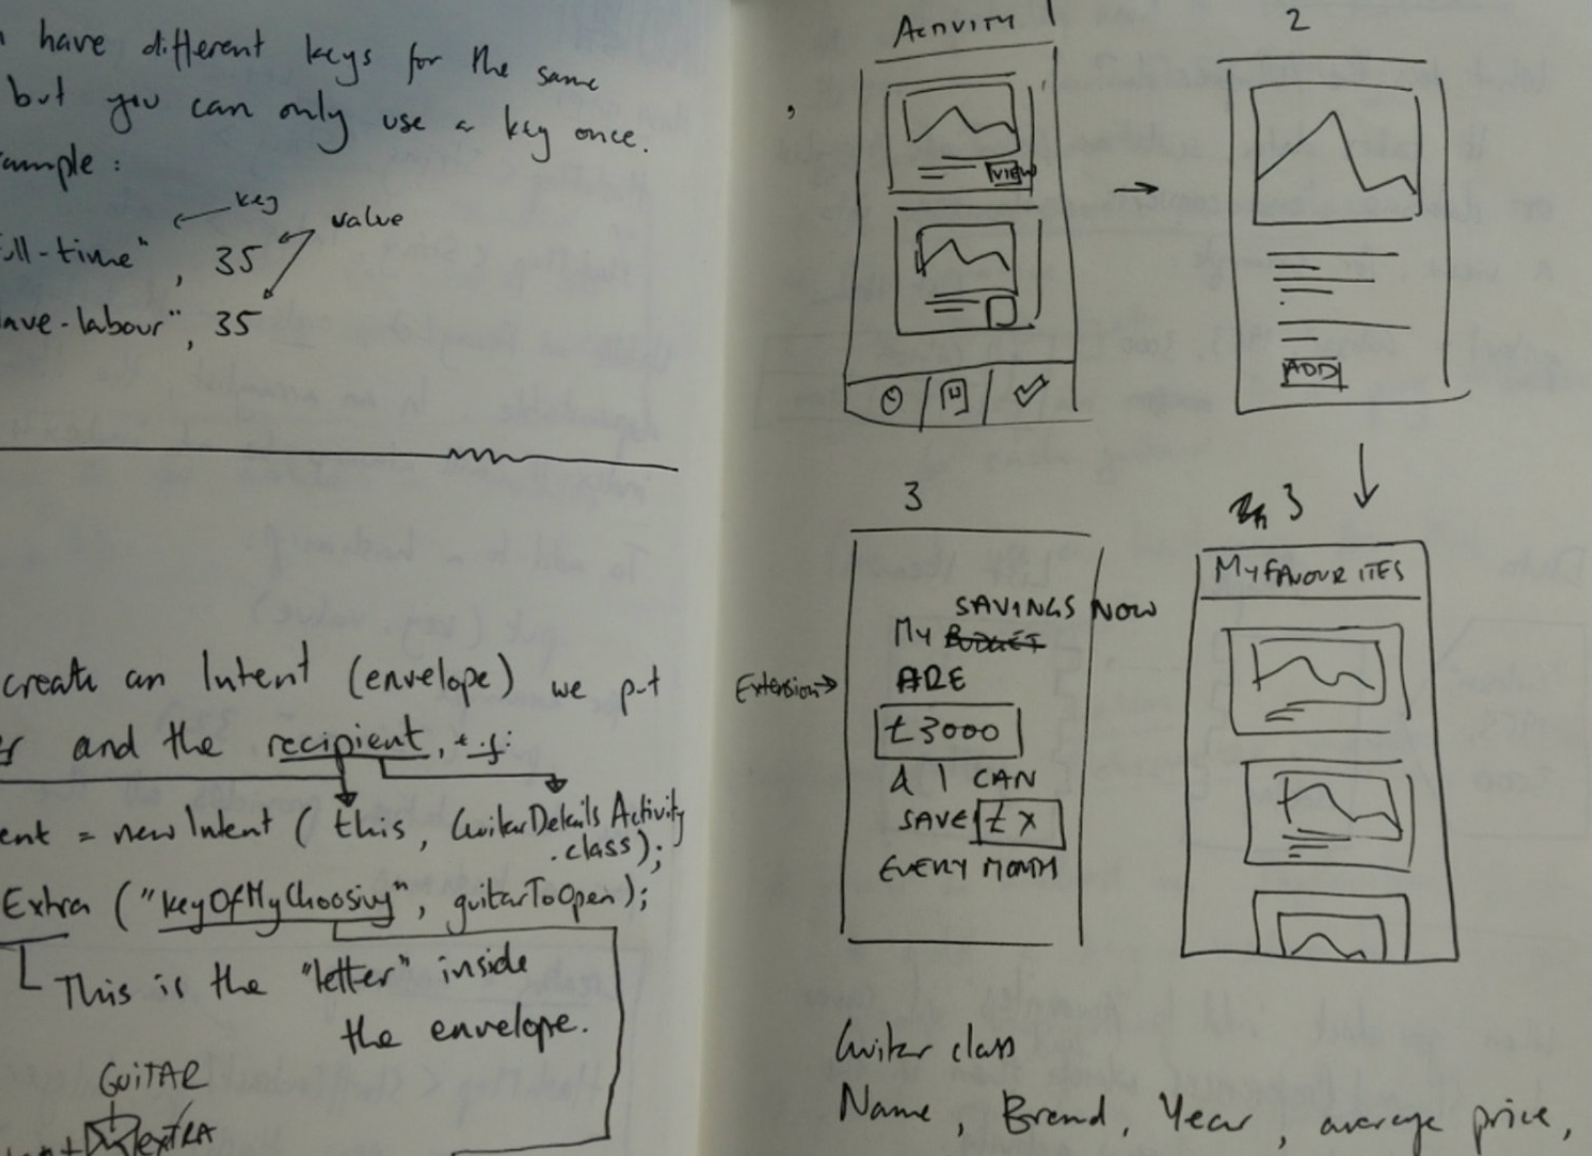 have different keys for the same
but you can only use a key once.
ample :
key
value
ull-time", 35
lave-labour", 35
create an Intent (envelope) we put
and the recipient, e.g:
ent = new Intent ( this, GuitarDetailsActivity
.class);
Extra ("keyOfMyChoosing", guitarToOpen);
This is the "letter" inside
the envelope.
GUITAR
EXTRA
ACTIVITY 1
VIEW
2
ADD
3
SAVINGS NOW
MY BUDGET
ARE
£3000
& I CAN
SAVE £x
EVERY MONTH
Extension
3
MY FAVOURITES
Guitar class
Name, Brand, Year, average price,